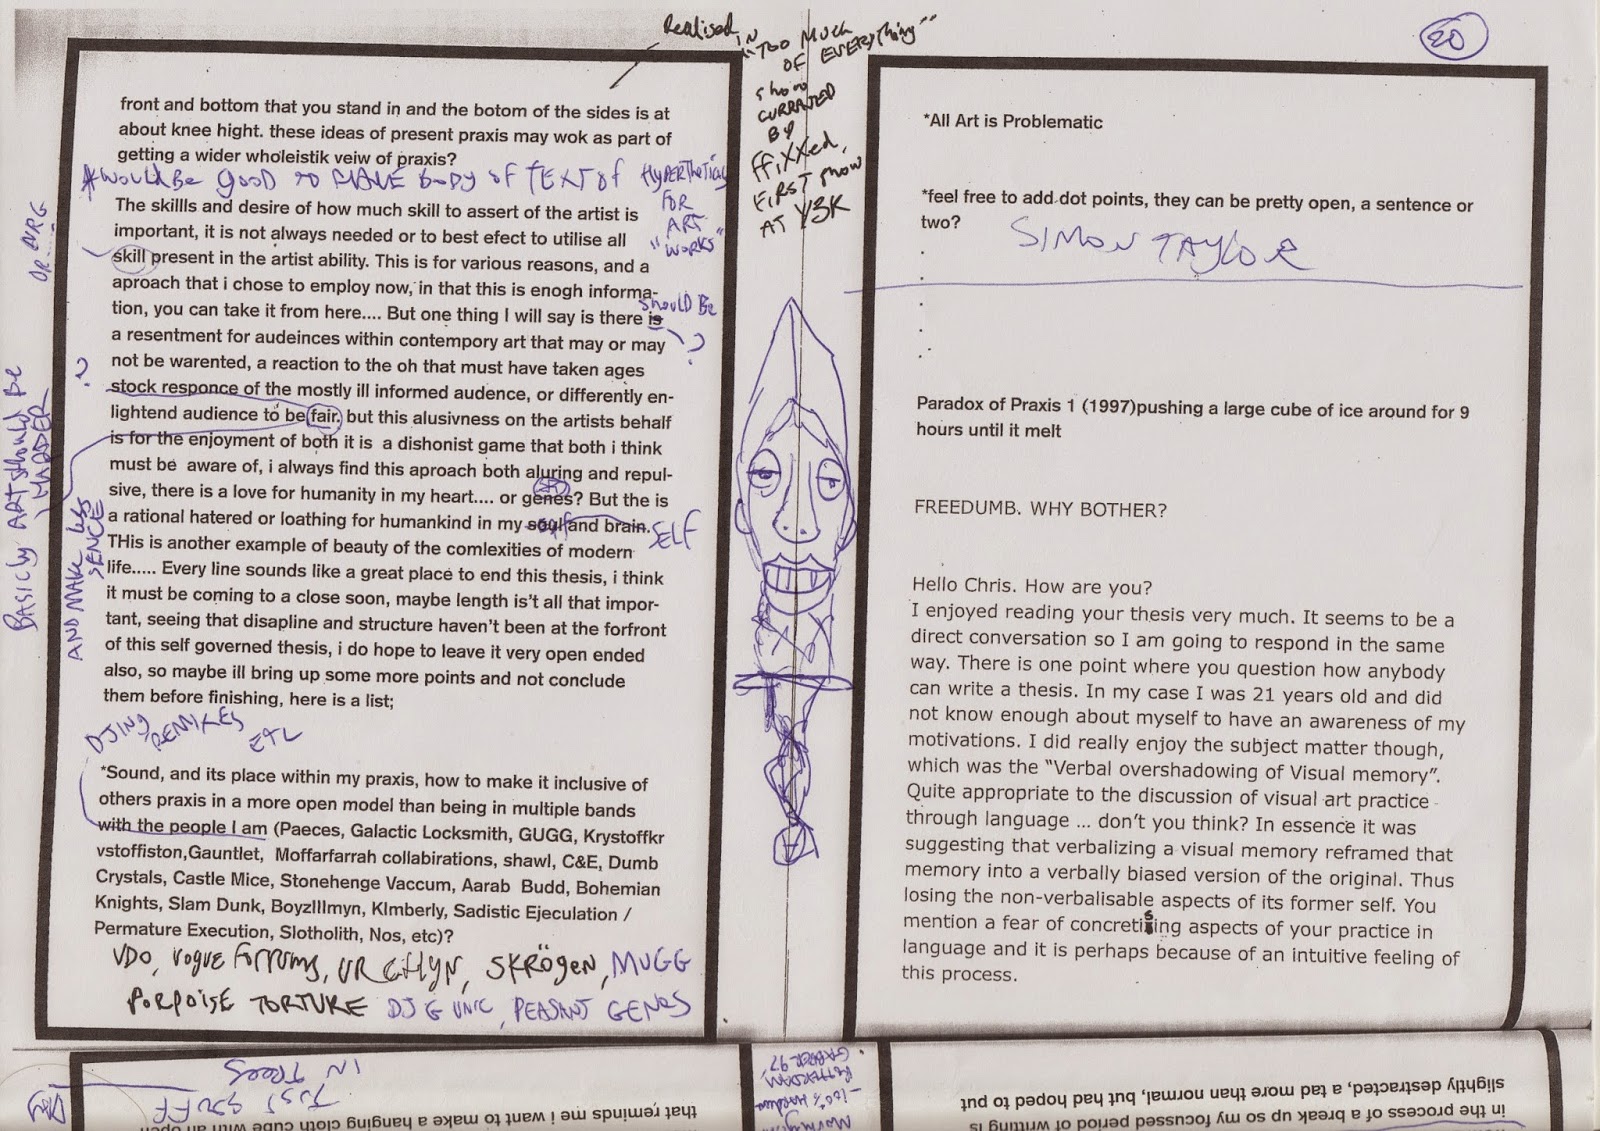 Realised IN
"TOO MUCH
OF EVERYTHING"
show
CURRATED
BY
ffiXXed,
FIRST show
AT Y3K
20
front and bottom that you stand in and the botom of the sides is at
about knee hight. these ideas of present praxis may wok as part of
getting a wider wholeistik veiw of praxis?
*WOULD BE GOOD TO MAKE BODY OF TEXT OF HYPERTHETICAL
FOR
ART
"WORKS"
The skillls and desire of how much skill to assert of the artist is
important, it is not always needed or to best efect to utilise all
skill present in the artist ability. This is for various reasons, and a
aproach that i chose to employ now, in that this is enogh informa-
SHOULD BE
tion, you can take it from here.... But one thing I will say is there is
a resentment for audeinces within contempory art that may or may
?
not be warented, a reaction to the oh that must have taken ages
?
stock responce of the mostly ill informed audence, or differently en-
lightend audience to be fair, but this alusivness on the artists behalf
is for the enjoyment of both it is a dishonist game that both i think
must be aware of, i always find this aproach both aluring and repul-
sive, there is a love for humanity in my heart.... or genes? But the is
a rational hatered or loathing for humankind in my soul and brain.
SELF
THis is another example of beauty of the comlexities of modern
life..... Every line sounds like a great place to end this thesis, i think
it must be coming to a close soon, maybe length is't all that impor-
tant, seeing that disapline and structure haven't been at the forfront
of this self governed thesis, i do hope to leave it very open ended
also, so maybe ill bring up some more points and not conclude
them before finishing, here is a list;
BASICLY ART SHOULD BE
MADDER
AND MAKE LESS
SENCE
DJING, REMIXES
ETC
*Sound, and its place within my praxis, how to make it inclusive of
others praxis in a more open model than being in multiple bands
with the people I am (Paeces, Galactic Locksmith, GUGG, Krystoffkr
vstoffiston,Gauntlet, Moffarfarrah collabirations, shawl, C&E, Dumb
Crystals, Castle Mice, Stonehenge Vaccum, Aarab Budd, Bohemian
Knights, Slam Dunk, BoyzIIImyn, KImberly, Sadistic Ejeculation /
Permature Execution, Slotholith, Nos, etc)?
VDO, SKRÖGEN, MUGG
PORPOISE TORTURE DJ G UNIC, PEASANT GENES
*All Art is Problematic
*feel free to add dot points, they can be pretty open, a sentence or
two?
SIMON TAYLOR
Paradox of Praxis 1 (1997)pushing a large cube of ice around for 9
hours until it melt
FREEDUMB. WHY BOTHER?
Hello Chris. How are you?
I enjoyed reading your thesis very much. It seems to be a
direct conversation so I am going to respond in the same
way. There is one point where you question how anybody
can write a thesis. In my case I was 21 years old and did
not know enough about myself to have an awareness of my
motivations. I did really enjoy the subject matter though,
which was the "Verbal overshadowing of Visual memory".
Quite appropriate to the discussion of visual art practice
through language ... don't you think? In essence it was
suggesting that verbalizing a visual memory reframed that
memory into a verbally biased version of the original. Thus
losing the non-verbalisable aspects of its former self. You
mention a fear of concretising aspects of your practice in
language and it is perhaps because of an intuitive feeling of
this process.
IN
TREES
JUST STUFF
that reminds me i want to make a hanging cloth cube with an
in the process of a break up so my focussed period of writing is
slightly destracted, a tad more than normal, but had hoped to put